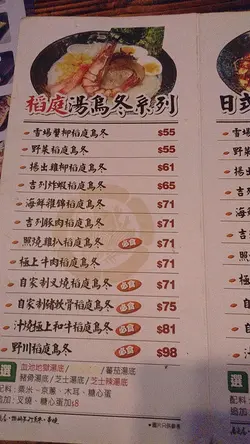 稻庭湯烏冬系列
雪場蟹柳稻庭烏冬 $55
野菜稻庭烏冬 $55
揚出雞柳稻庭烏冬 $61
吉列炸蝦稻庭烏冬 $65
海鮮雜錦稻庭烏冬 $71
吉列豚肉稻庭烏冬 $71
照燒雞扒稻庭烏冬 必食 $71
極上牛肉稻庭烏冬 $71
自家制叉燒稻庭烏冬 必食 $71
自家制豬軟骨稻庭烏冬 必食 $75
汁燒極上和牛稻庭烏冬 必食 $81
野川稻庭烏冬 必食 $98
選
血池地獄湯底/ /蕃茄湯底
豬骨湯底/芝士湯底/芝士辣湯底
配料：粟米、京蔥、木耳、糖心蛋
追加：叉燒、糖心蛋加$8
日式